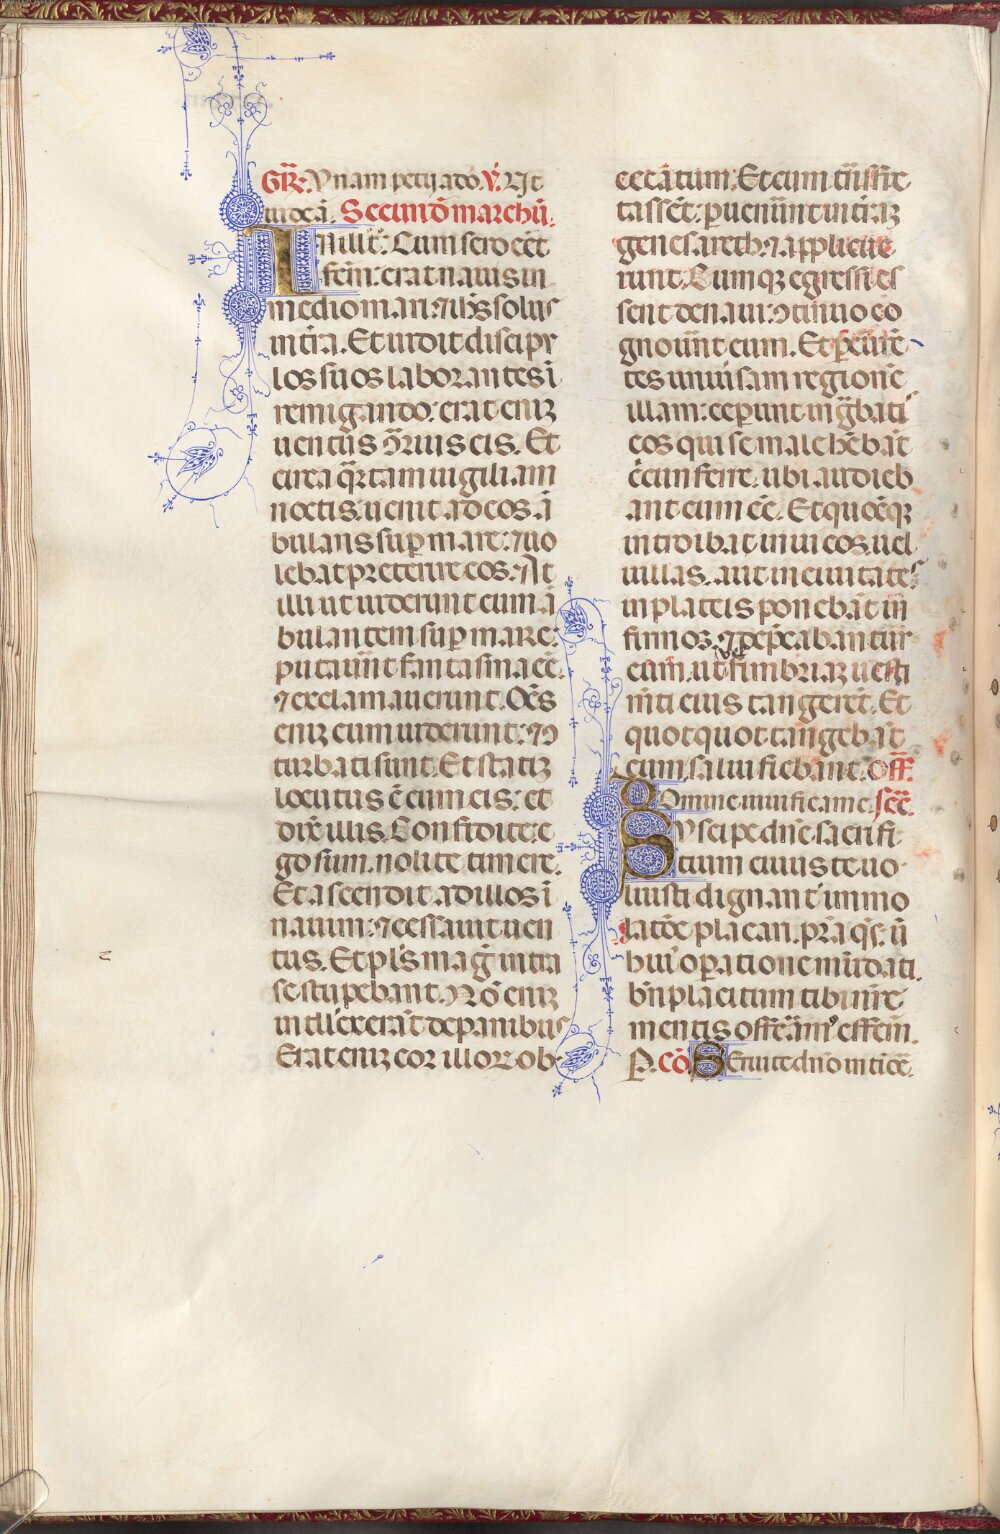 GR̄. Unam petii a do. V̄. Ut
uideā. Secundō marchū.
IN illo t̄. Cum sero eēt
fcm̄: erat nauis in
medio mari: ⁊ ih̄s solus
in tr̄a. Et uidit discipu
los suos laborantes ī
remigando: erat eniꝫ
uentus 9trarius eis. Et
circa qrtam uigiliam
noctis. uenit ad eos ā
bulans suꝑ mare: ⁊ uo
lebat preterire eos. At
illi ut uiderunt eum ā
bulantem suꝑ mare:
putauūnt fantasma eē.
⁊ exclamauerunt. Oēs
eniꝫ eum uiderunt: ⁊ 9
turbati sunt. Et statiꝫ
locutus ē cum eis: et
dix̄ illis. Confidite: e
go sum. nolite timere.
Et ascendit ad illos ī
nauim: ⁊ cessauit uen
tus. Et pl̄s mag̃ intra
se stupebant. Nō eniꝫ
intell̄exerāt de panibus
Erat eniꝫ cor illoꝝ ob
cecātum. Et cum trāsfre
tassēt: ꝑuenūnt in trāꝫ
genesareth: ⁊ applicue
runt. Cumqꝫ egressi es
sent de naui: 9tinuo co
gnoūnt eum. Et ꝑcurrē
tes uniuersam regionē
illam: ceperunt in g̃bati
cos qui se male hēbāt
circumferre. ubi audieb
ant eum eē. Et quocūqꝫ
introibat in uicos. uel
uillas. aut in ciuitates
in plateis ponebāt in
firmos. ⁊ deꝑcabantur
eum. ut uel fimbriaꝫ uesti
m̄ti eius tangerēt. Et
quotquot tangebāt
eum salui fiebant. Off̄.
Domine uiuifica me. sec̄.
SUscipe dn̄e sacrifi
cium cuius te uo
luisti dignant̄ immo
latōe placari. pr̄a qs̄. ū
huiꝰ oꝑatione mūdati.
bn̄placitum tibi nr̄e
mentis offerāmꝰ effcm̄.
P. cō. Seruite dno in tiōe.